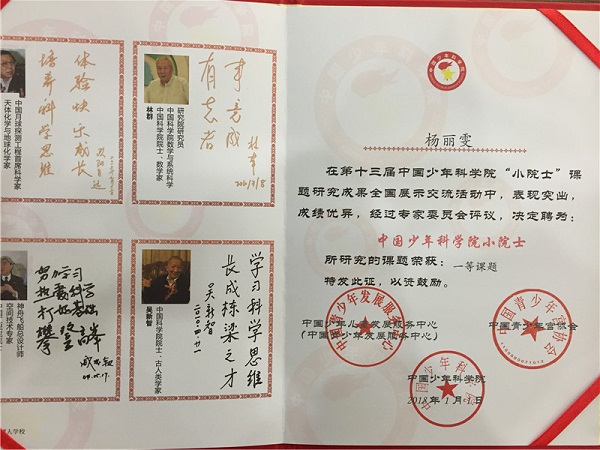 体验快乐成长
培养科学思维
中国月球探测工程首席科学家
天体化学与地球化学家
有志者
事竟成
林群
林群
中国科学院院士、数学家
中国科学院数学与系统科学
研究院研究员
努力学习
热爱科学
打好基础
攀登高峰
戚发轫
神舟飞船总设计师
空间技术专家
学习科学思维
长成栋梁之才
吴新智
吴新智
中国科学院院士、古人类学家
杨丽雯
在第十三届中国少年科学院“小院士”课
题研究成果全国展示交流活动中，表现突出，
成绩优异，经过专家委员会评议，决定聘考：
中国少年科学院小院士
所研究的课题荣获：一等课题
特发此证，以资鼓励。
中国少年儿童发展服务中心
中国青少年宫协会
中国少年科学院
2018年1月1日